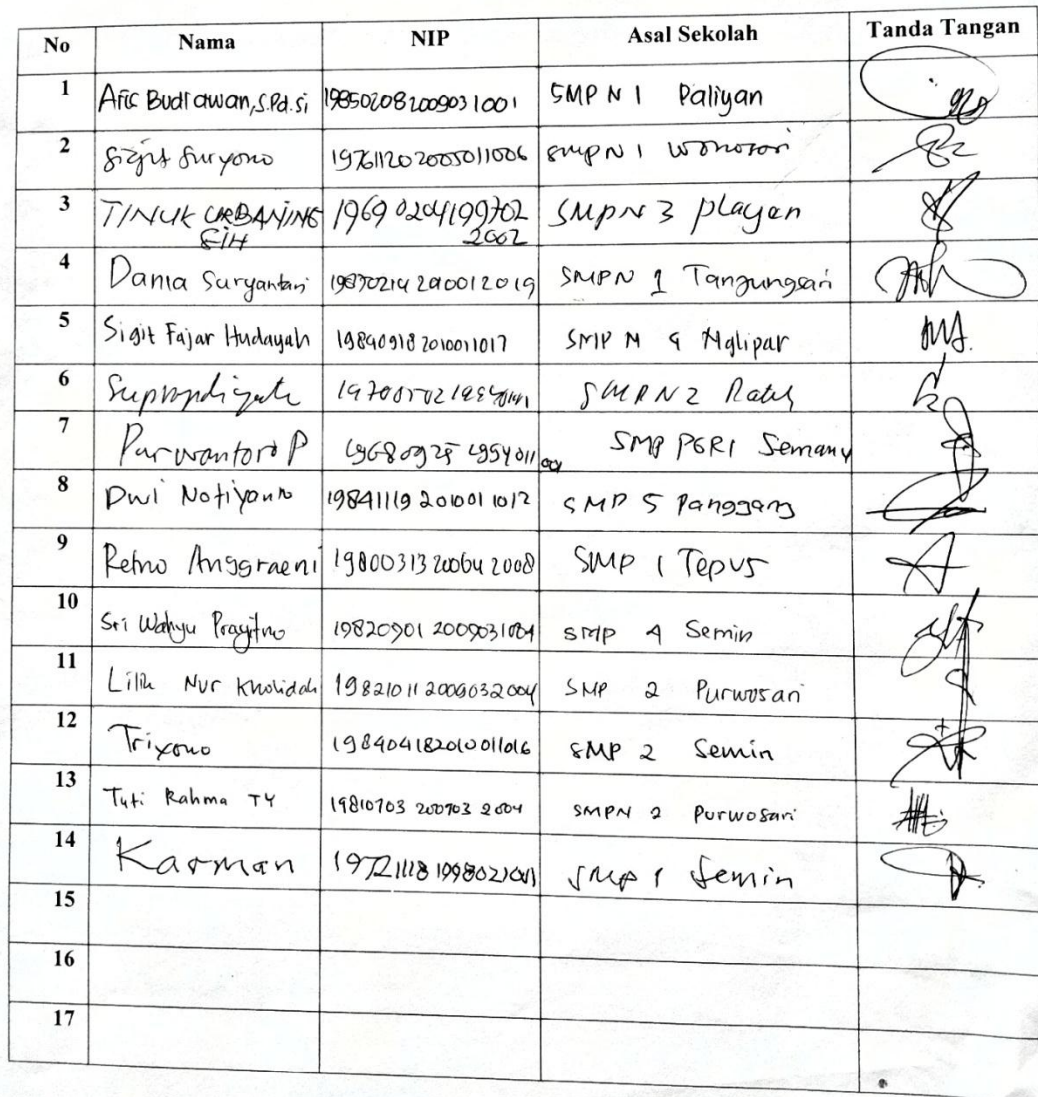 No Nama NIP Asal Sekolah Tanda Tangan
1 Aric Budiawan, S.Pd.Si 198502082009031001 SMP N 1 Paliyan
2 Sigit Suryono 197611202005011006 SMPN 1 Wonosari
3 TINUK URBANING 19690204199702 SMPN 3 Playen
SIH 2002
4 Dania Suryantari 19870214 201001 2019 SMPN 1 Tanjungsari
5 Sigit Fajar Hudayah 19840918 2010011017 SMP N 4 Nglipar
6 SMPN 2
7 Purwantoro P SMP PGRI Semanu
8 Dwi 19841119 201001 1012 SMP 5 Panggang
9 Retno Anggraeni 19800313 200604 2008 SMP 1 Tepus
10 Sri Wahyu Prayitno 19820901 2009031004 SMP 4 Semin
11 Lilik Nur Kholidah 19821011 2009032004 SMP 2 Purwosari
12 Triyono 198404182010011016 SMP 2 Semin
13 Tuti Rahma TY 19810703 200703 2004 SMPN 2 Purwosari
14 Karman 19721118 199802 1001 SMP 1 Semin
15
16
17